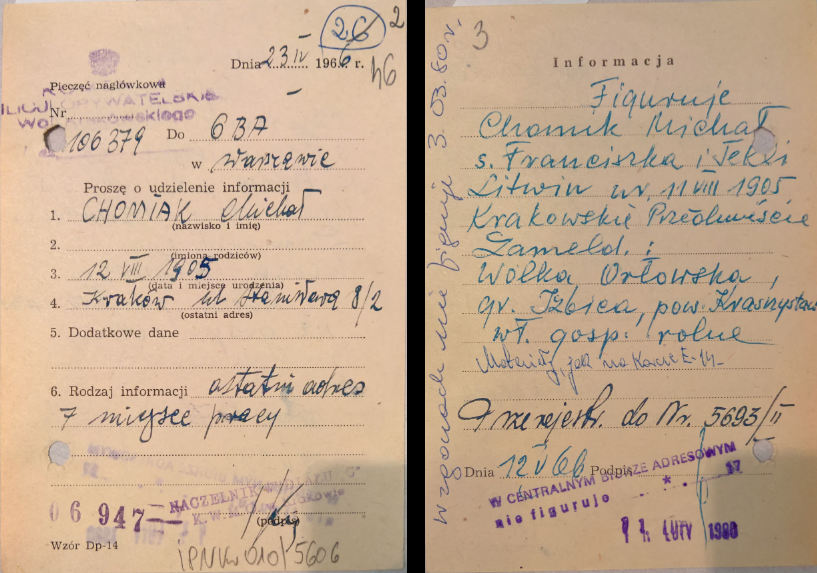 26 2
Dnia 23 IV 1966 r.
46
Pieczęć nagłówkowa
Nr 106379 Do CBA
w Warszawie
Proszę o udzielenie informacji
1. CHOMIAK Michał
(nazwisko i imię)
2.
(imiona rodziców)
3. 12 VIII 1905
(data i miejsce urodzenia)
4. Kraków ul Staniwara 8/2
(ostatni adres)
5. Dodatkowe dane
6. Rodzaj informacji ostatni adres
7 miejsce pracy
06947
NACZELNIK
(podpis)
Wzór Dp-14
IPN Kr 010/5606
3
Informacja
Figuruje
Chomik Michał
s. Franciszka i Tekli
Litwin ur. 11 VIII 1905
Krakowskie Przedmieście
Zameld. :
Wólka Orłowska,
gr. Izbica, pow. Krasnystaw
wł. gosp. rolne
Materiały jak na karcie E-14
Przerejestr. do Nr. 5693/II
Dnia 12 V 66 Podpis
W CENTRALNYM BIURZE ADRESOWYM
nie figuruje
* 17
11. LUTY 1980
W zgonach nie figuruje 3.03.80 r.